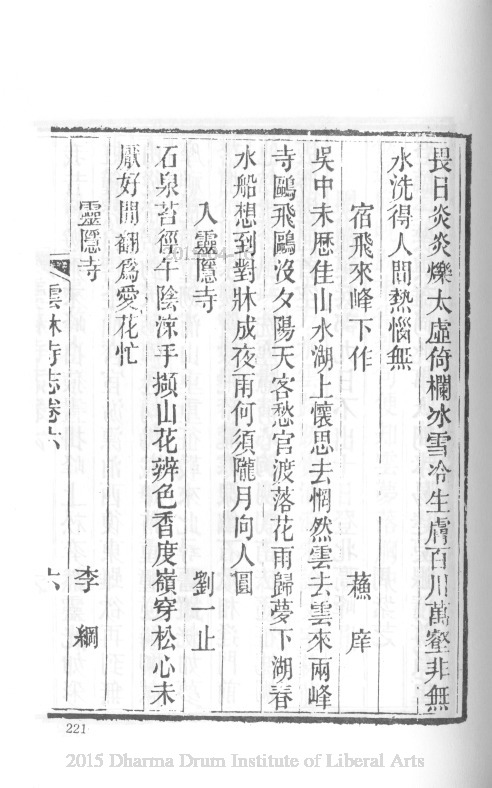 畏日炎炎爍太虛倚欄冰雪冷生膚百川萬壑非無
水洗得人間熱惱無
宿飛來峰下作 蘓庠
吳中未歷佳山水湖上懷思去惘然雲去雲來兩峰
寺鷗飛鷗沒夕陽天客愁官渡落花雨歸夢下湖春
水船想到對牀成夜雨何須隴月向人圓
入靈隱寺 劉一止
石泉苔徑午陰涼手擷山花辨色香度嶺穿松心未
厭好閒翻爲愛花忙
靈隱寺 李綱
雲林寺志卷六 六
221
2015 Dharma Drum Institute of Liberal Arts